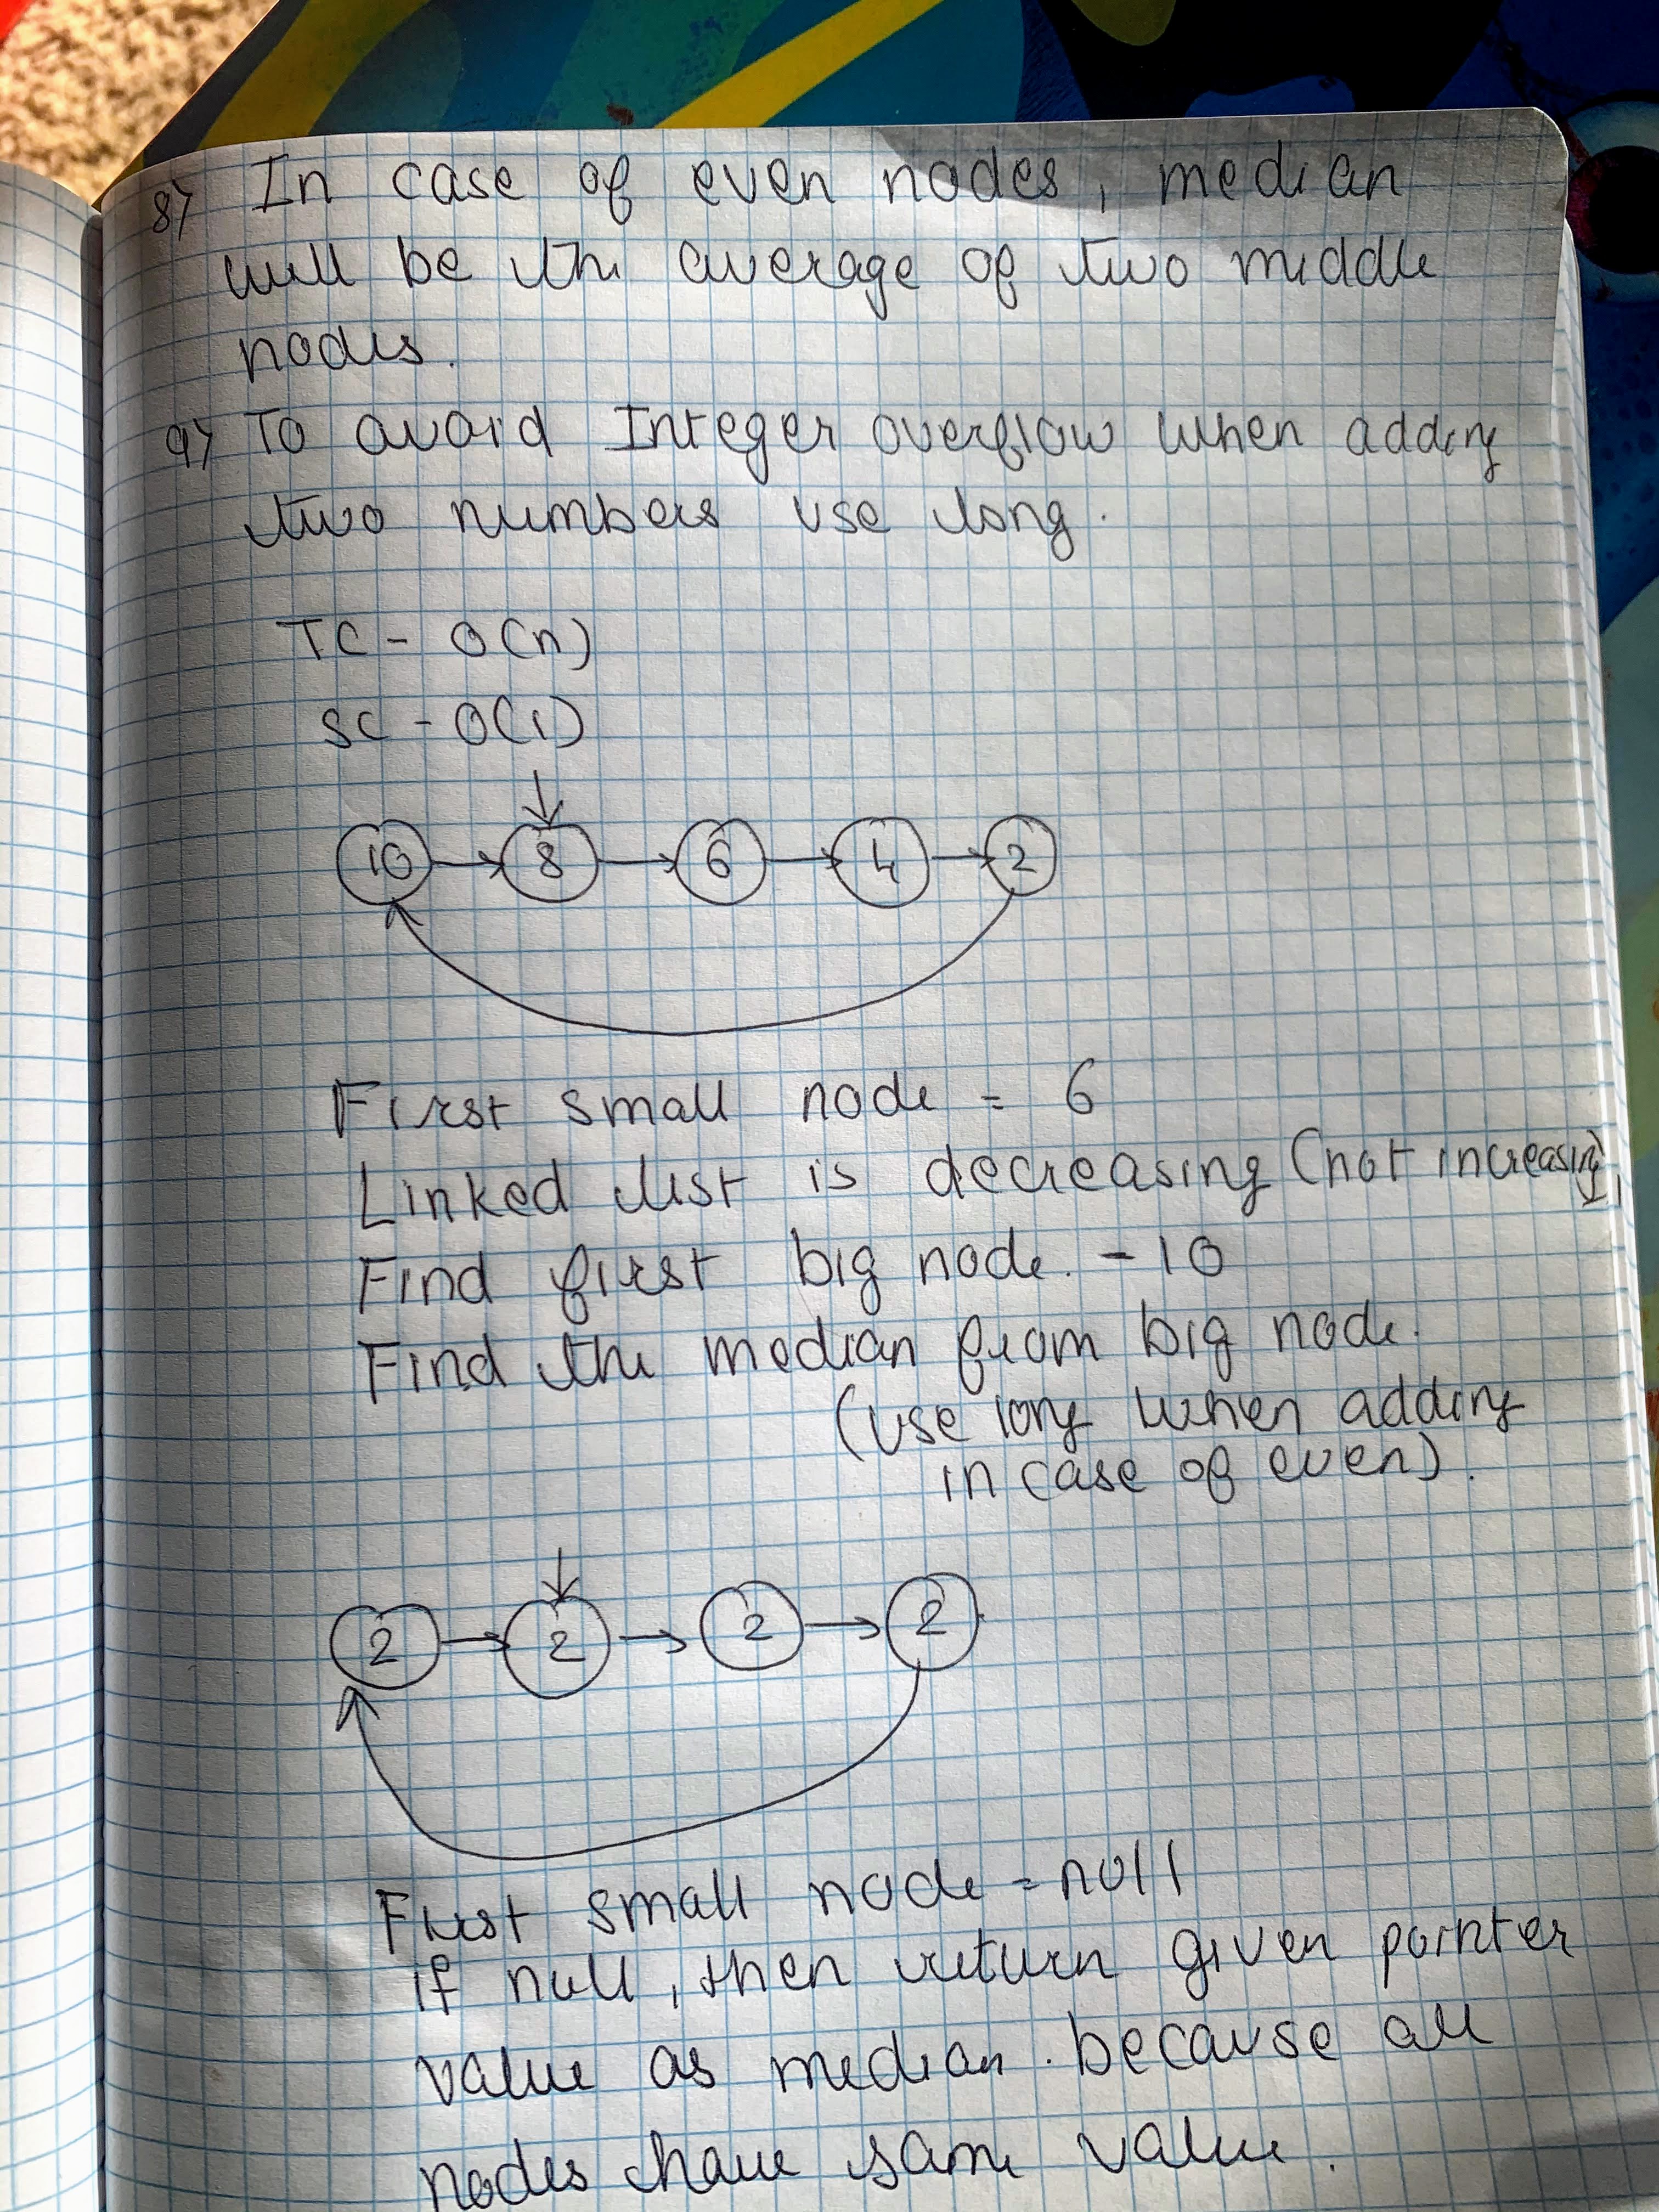 8) In case of even nodes, median
will be the average of two middle
nodes.
9) To avoid Integer overflow when adding
two numbers use long.
TC - O(n)
SC - O(1)
10 8 6 4 2
First small node = 6
Linked list is decreasing (not increasing),
Find first big node. - 10
Find the median from big node.
(use long when adding
in case of even).
2 2 2 2
First small node = null
if null, then return given pointer
value as median. because all
nodes have same value.